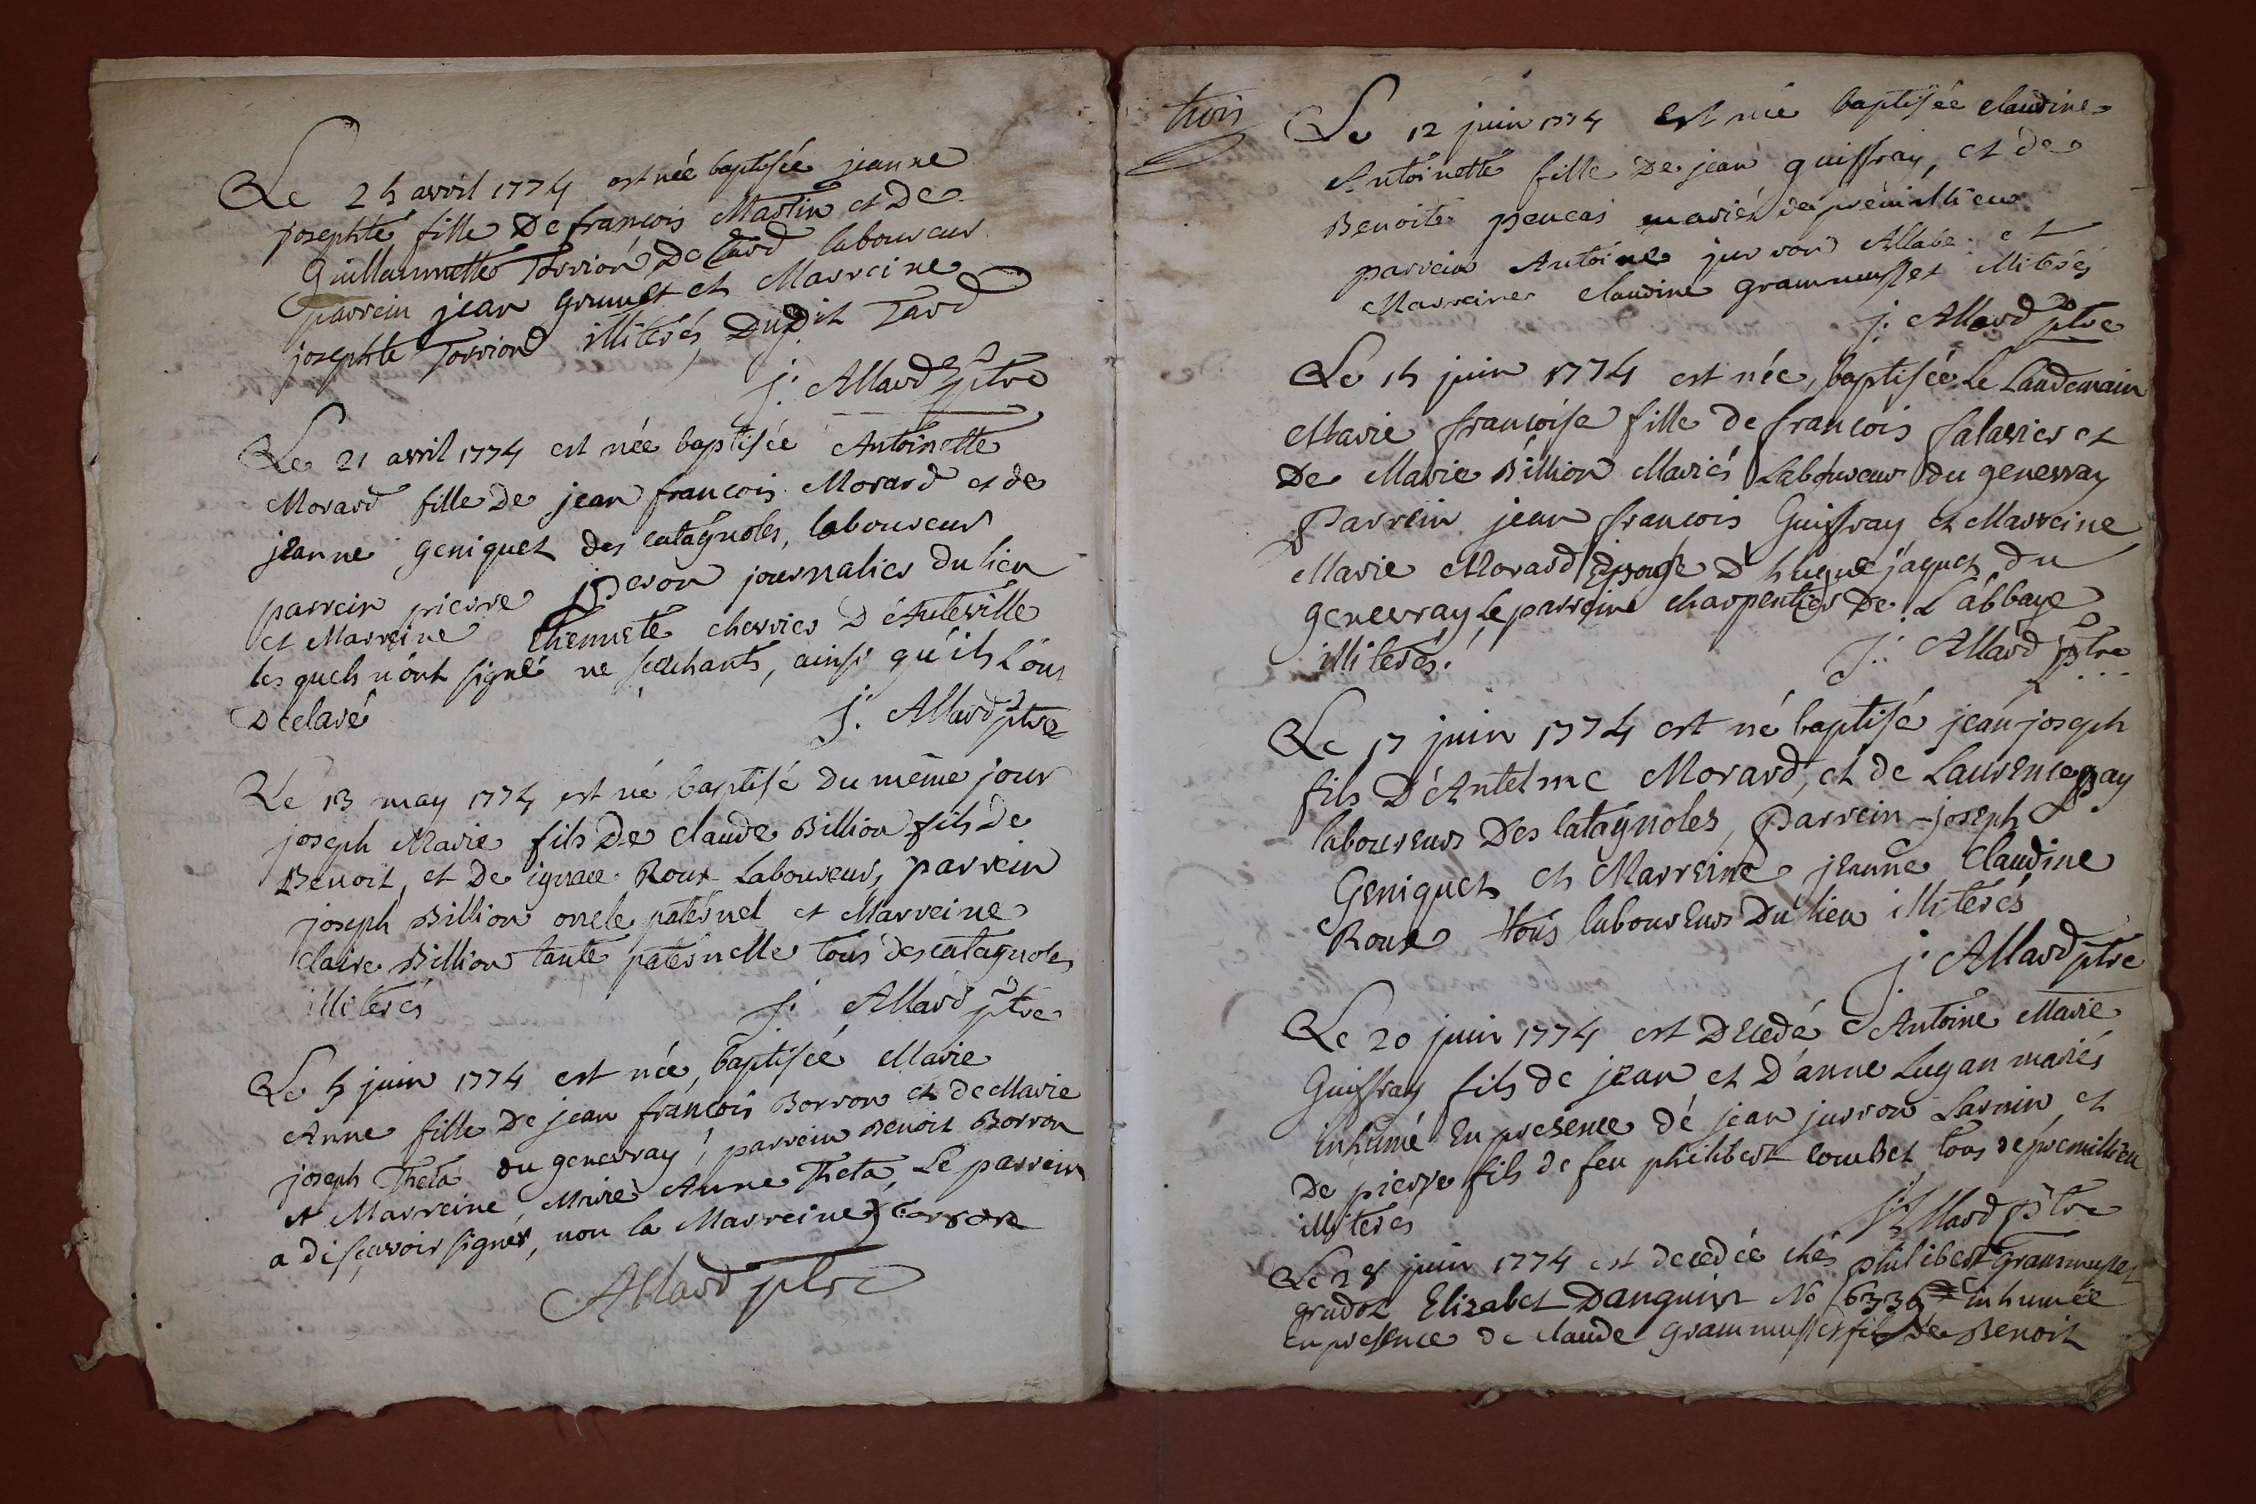 Le 25 avril 1774 est née baptisée jeanne
josephte fille De françois Martin et De
Guillaumette Torrion De Tard laboureur
parrein jean Grumet et Marreine
josephte Torriond illiterés Dudit Tard
j: Allard ptre
Le 21 avril 1774 est née baptisée Antoinette
Morard fille de jean françois Morard et de
jeanne geniquet des catagnoles, laboureur
parrein pierre peron journalier du lieu
et Marreine thennete chervier D'Auteville
les quels n'ont signé ne sçachants, ainsi qu'ils l'ont
Declaré
j: Allard ptre
Le 13 may 1774 est né baptisé Du même jour
joseph Marie fils De claude Billion fils De
Benoit, et De ignace Roux Laboureur, parrein
joseph Billion oncle paternel et Marreine
claire Billion tante paternelle tous des catagnoles
illiterés
j: Allard ptre
Le 5 juin 1774 est née, baptisée Marie
Anne fille De jean françois Borron et de Marie
joseph Theta du genevray, parrein Benoit Borron
et Marreine, Marie Anne Theta, Le parrein
a dit sçavoir signer, non la Marreine
Allard ptre
trois
Le 12 juin 1774 est née baptisée claudine
Antoinette fille De jean guiffray, et de
Benoite peucas mariés de prémillieu
parrein Antoine jurron Allabe et
Marreine claudine grammusset illiterés
j: Allard ptre
Le 15 juin 1774 est née, baptisée Le Landemain
Marie françoise fille de françois Salavier et
De Marie Billion Mariés Laboureur du genevray
Parrein jean françois Guiffray et Marreine
Marie Morard Epouse D'hugue jaquet du
genevray Le parreine charpentier De L'abbaye
illiterés.
j: Allard ptre
Le 17 juin 1774 est né baptisé jean joseph
fils D'Antelme Morard, et de Laurence pay
laboureur Des catagnoles, Parrein joseph
Geniquet et Marreine jeanne Claudine
Roux tous laboureurs Du lieu illiterés
j: Allard ptre
Le 20 juin 1774 est Decedé Antoine Marie
Guiffray fils de jean et D'anne Lugan mariés
inhumé En presence de jean jurron Larnin, et
De pierre fils de feu philibert combet tous de premillieu
illiterés
j: Allard ptre
Le 28 juin 1774 est decedée chés philibert grammusset
gradot Elizabet Danguin No 6336 inhumée
en presence de claude grammusset fils de Benoit